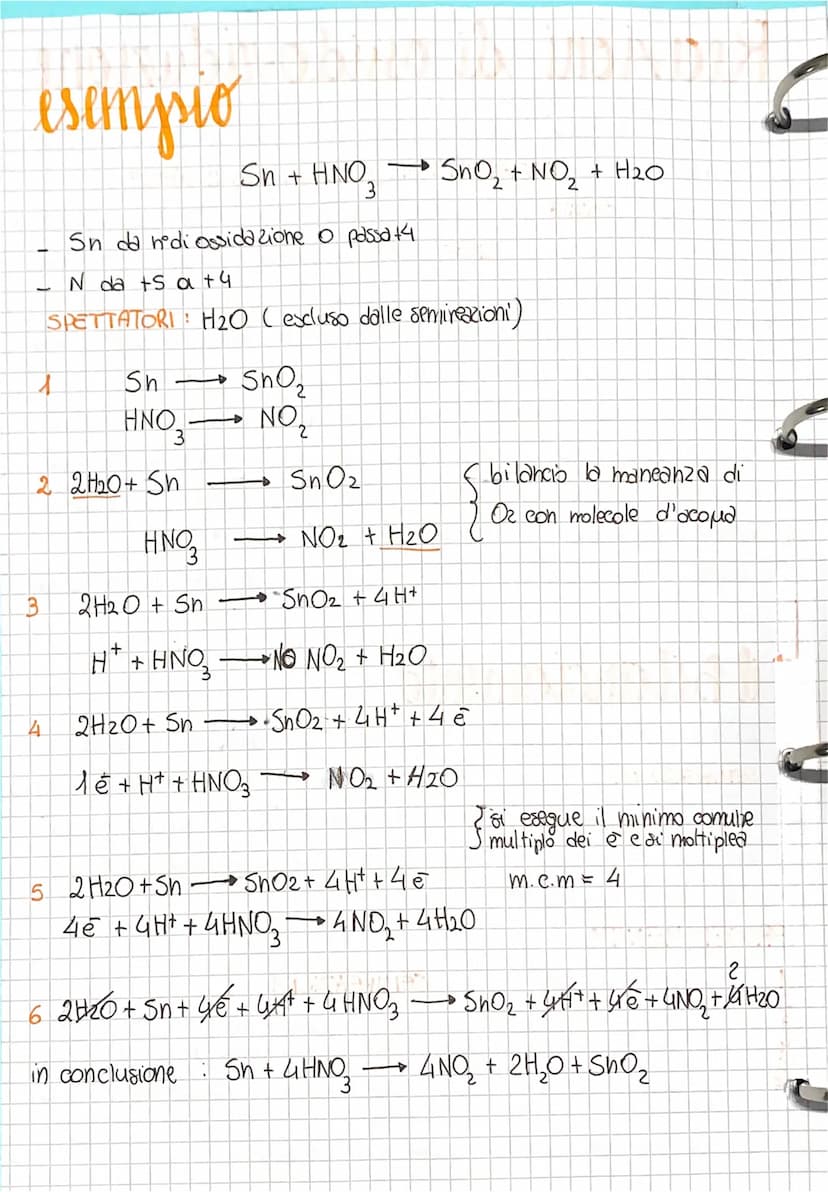 esempio
Sn + HNO₃ → SnO₂ + NO₂ + H2O
- Sn da n°di ossidazione 0 passa +4
- N da +5 a +4
SPETTATORI : H2O ( escluso dalle semireazioni )
1 Sn → SnO₂
HNO₃ → NO₂
2 2H2O + Sn → SnO2
HNO₃ → NO2 + H2O
{ bilancio la mancanza di
O2 con molecole d'acqua
3 2H2O + Sn → SnO2 + 4H⁺
H⁺ + HNO₃ → NO NO2 + H2O
4 2H2O + Sn → SnO2 + 4H⁺ + 4 ē
1 ē + H⁺ + HNO₃ → NO2 + H2O
{ si esegue il minimo comune
multiplo dei ē e si moltiplica
5 2H2O + Sn → SnO2 + 4H⁺ + 4 ē m.c.m = 4
4ē + 4H⁺ + 4HNO₃ → 4NO₂ + 4H2O
6 2H2O + Sn + 4ē + 4H⁺ + 4HNO₃ → SnO2 + 4H⁺ + 4ē + 4NO₂ + 4 2 H2O
in conclusione : Sn + 4HNO₃ → 4NO₂ + 2H₂O + SnO₂